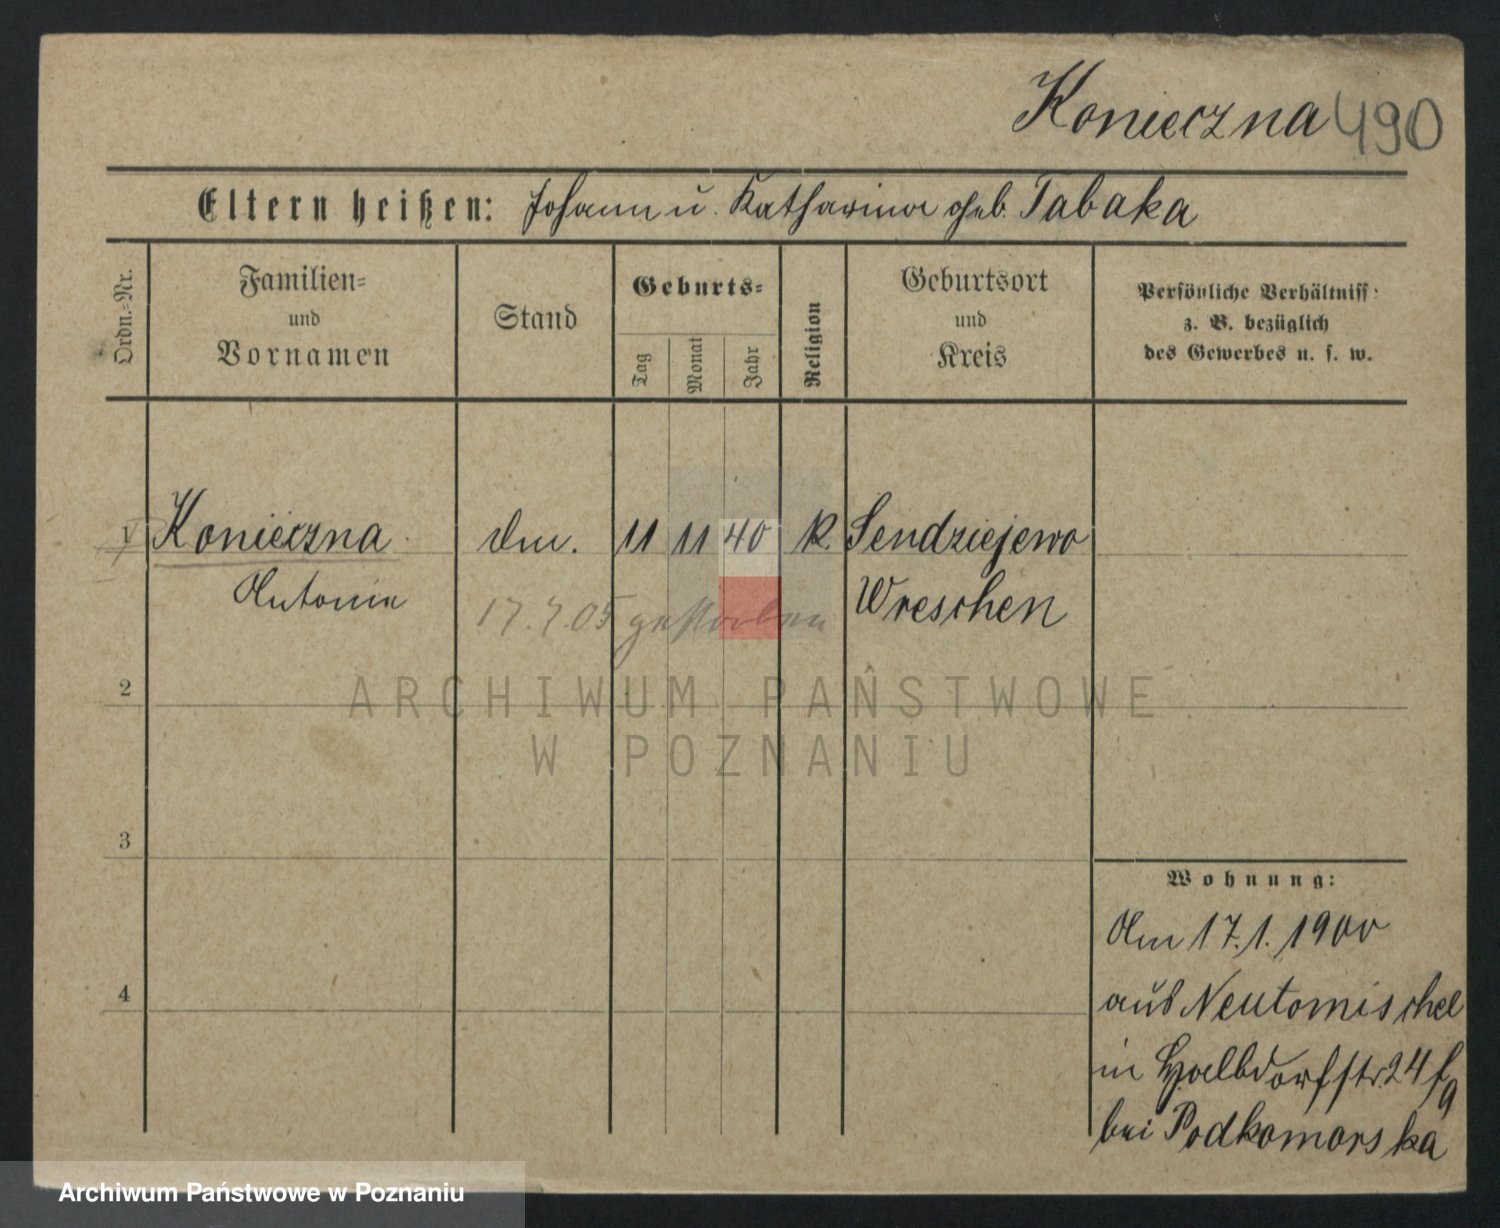 Konieczna 490
Eltern heißen: Johann u. Katharina geb. Tabaka
Ordn.-Nr.
Familien-
und
Vornamen
Stand
Geburts-
Tag
Monat
Jahr
Religion
Geburtsort
und
Kreis
Persönliche Verhältniss
z. B. bezüglich
des Gewerbes u. s. w.
1 Konieczna 11 11 40 K. Sendziejewo
Antonie 17.7.05 gestorben Wreschen
ARCHIWUM PAŃSTWOWE
W POZNANIU
2
3
4
Wohnung:
Am 17.1.1900
aus Neutomischel
in Halbdorfstr. 24
bei Podkomorska
Archiwum Państwowe w Poznaniu